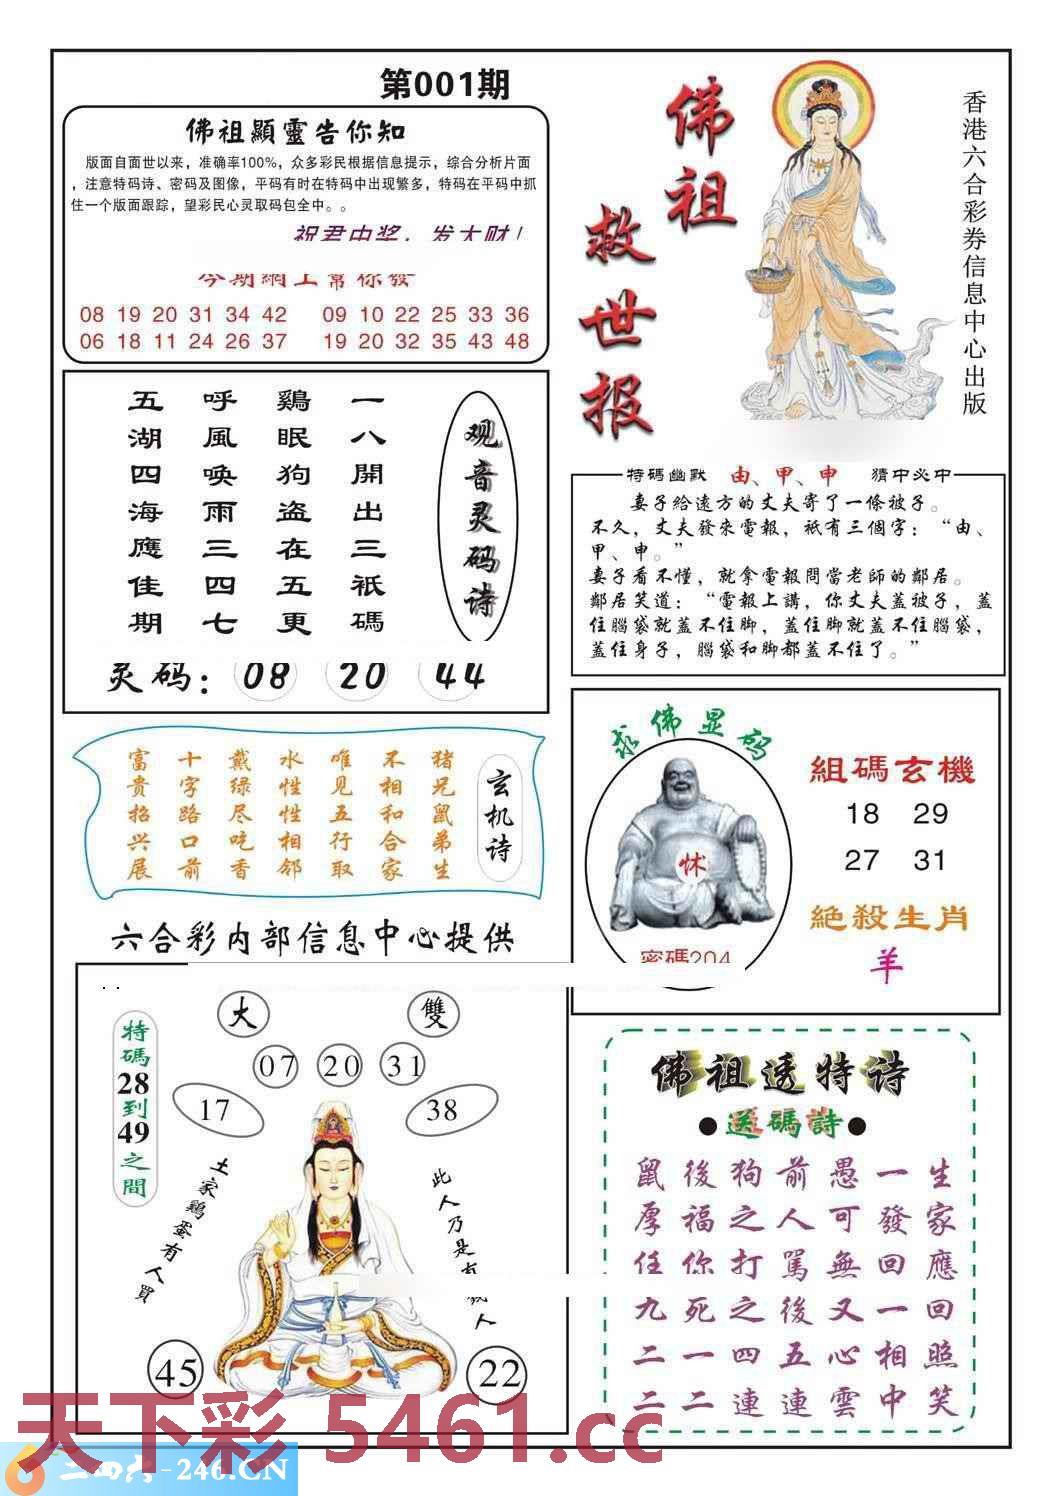 第001期
佛祖顯靈告你知
版面自面世以来，准确率100%，众多彩民根据信息提示，综合分析片面
，注意特码诗、密码及图像，平码有时在特码中出现繁多，特码在平码中抓
住一个版面跟踪，望彩民心灵取码包全中。。
祝君中奖，发大财！
今期網上幫你發
08 19 20 31 34 42 09 10 22 25 33 36
06 18 11 24 26 37 19 20 32 35 43 48
佛祖
救世报
香港六合彩券信息中心出版
观音灵码诗
一八開出三祇碼
鷄眠狗盗在五更
呼風唤雨三四七
五湖四海應佳期
灵码：08 20 44
特碼幽默 由、甲、申 猜中必中
妻子給遠方的丈夫寄了一條被子。
不久，丈夫發來電報，祇有三個字：“由、
甲、申。”
妻子看不懂，就拿電報問當老師的鄰居。
鄰居笑道：“電報上講，你丈夫蓋被子，蓋
住腦袋就蓋不住脚，蓋住脚就蓋不住腦袋，
蓋住身子，腦袋和脚都蓋不住了。”
玄机诗
猪兄鼠弟生
不相和合家
唯见五行取
水性性相邻
戴绿尽吃香
十字路口前
富贵招兴展
求佛显码
密碼204
組碼玄機
18 29
27 31
絶殺生肖
羊
六合彩内部信息中心提供
特碼28到49之間
大 雙
07 20 31
17 38
土家鷄蛋有人買
此人乃是有
人
45 22
佛祖透特诗
●送碼詩●
鼠後狗前愚一生
厚福之人可發家
任你打駡無回應
九死之後又一回
二一四五心相照
二二連連雲中笑
天下彩 5461.cc
二四六-246.CN